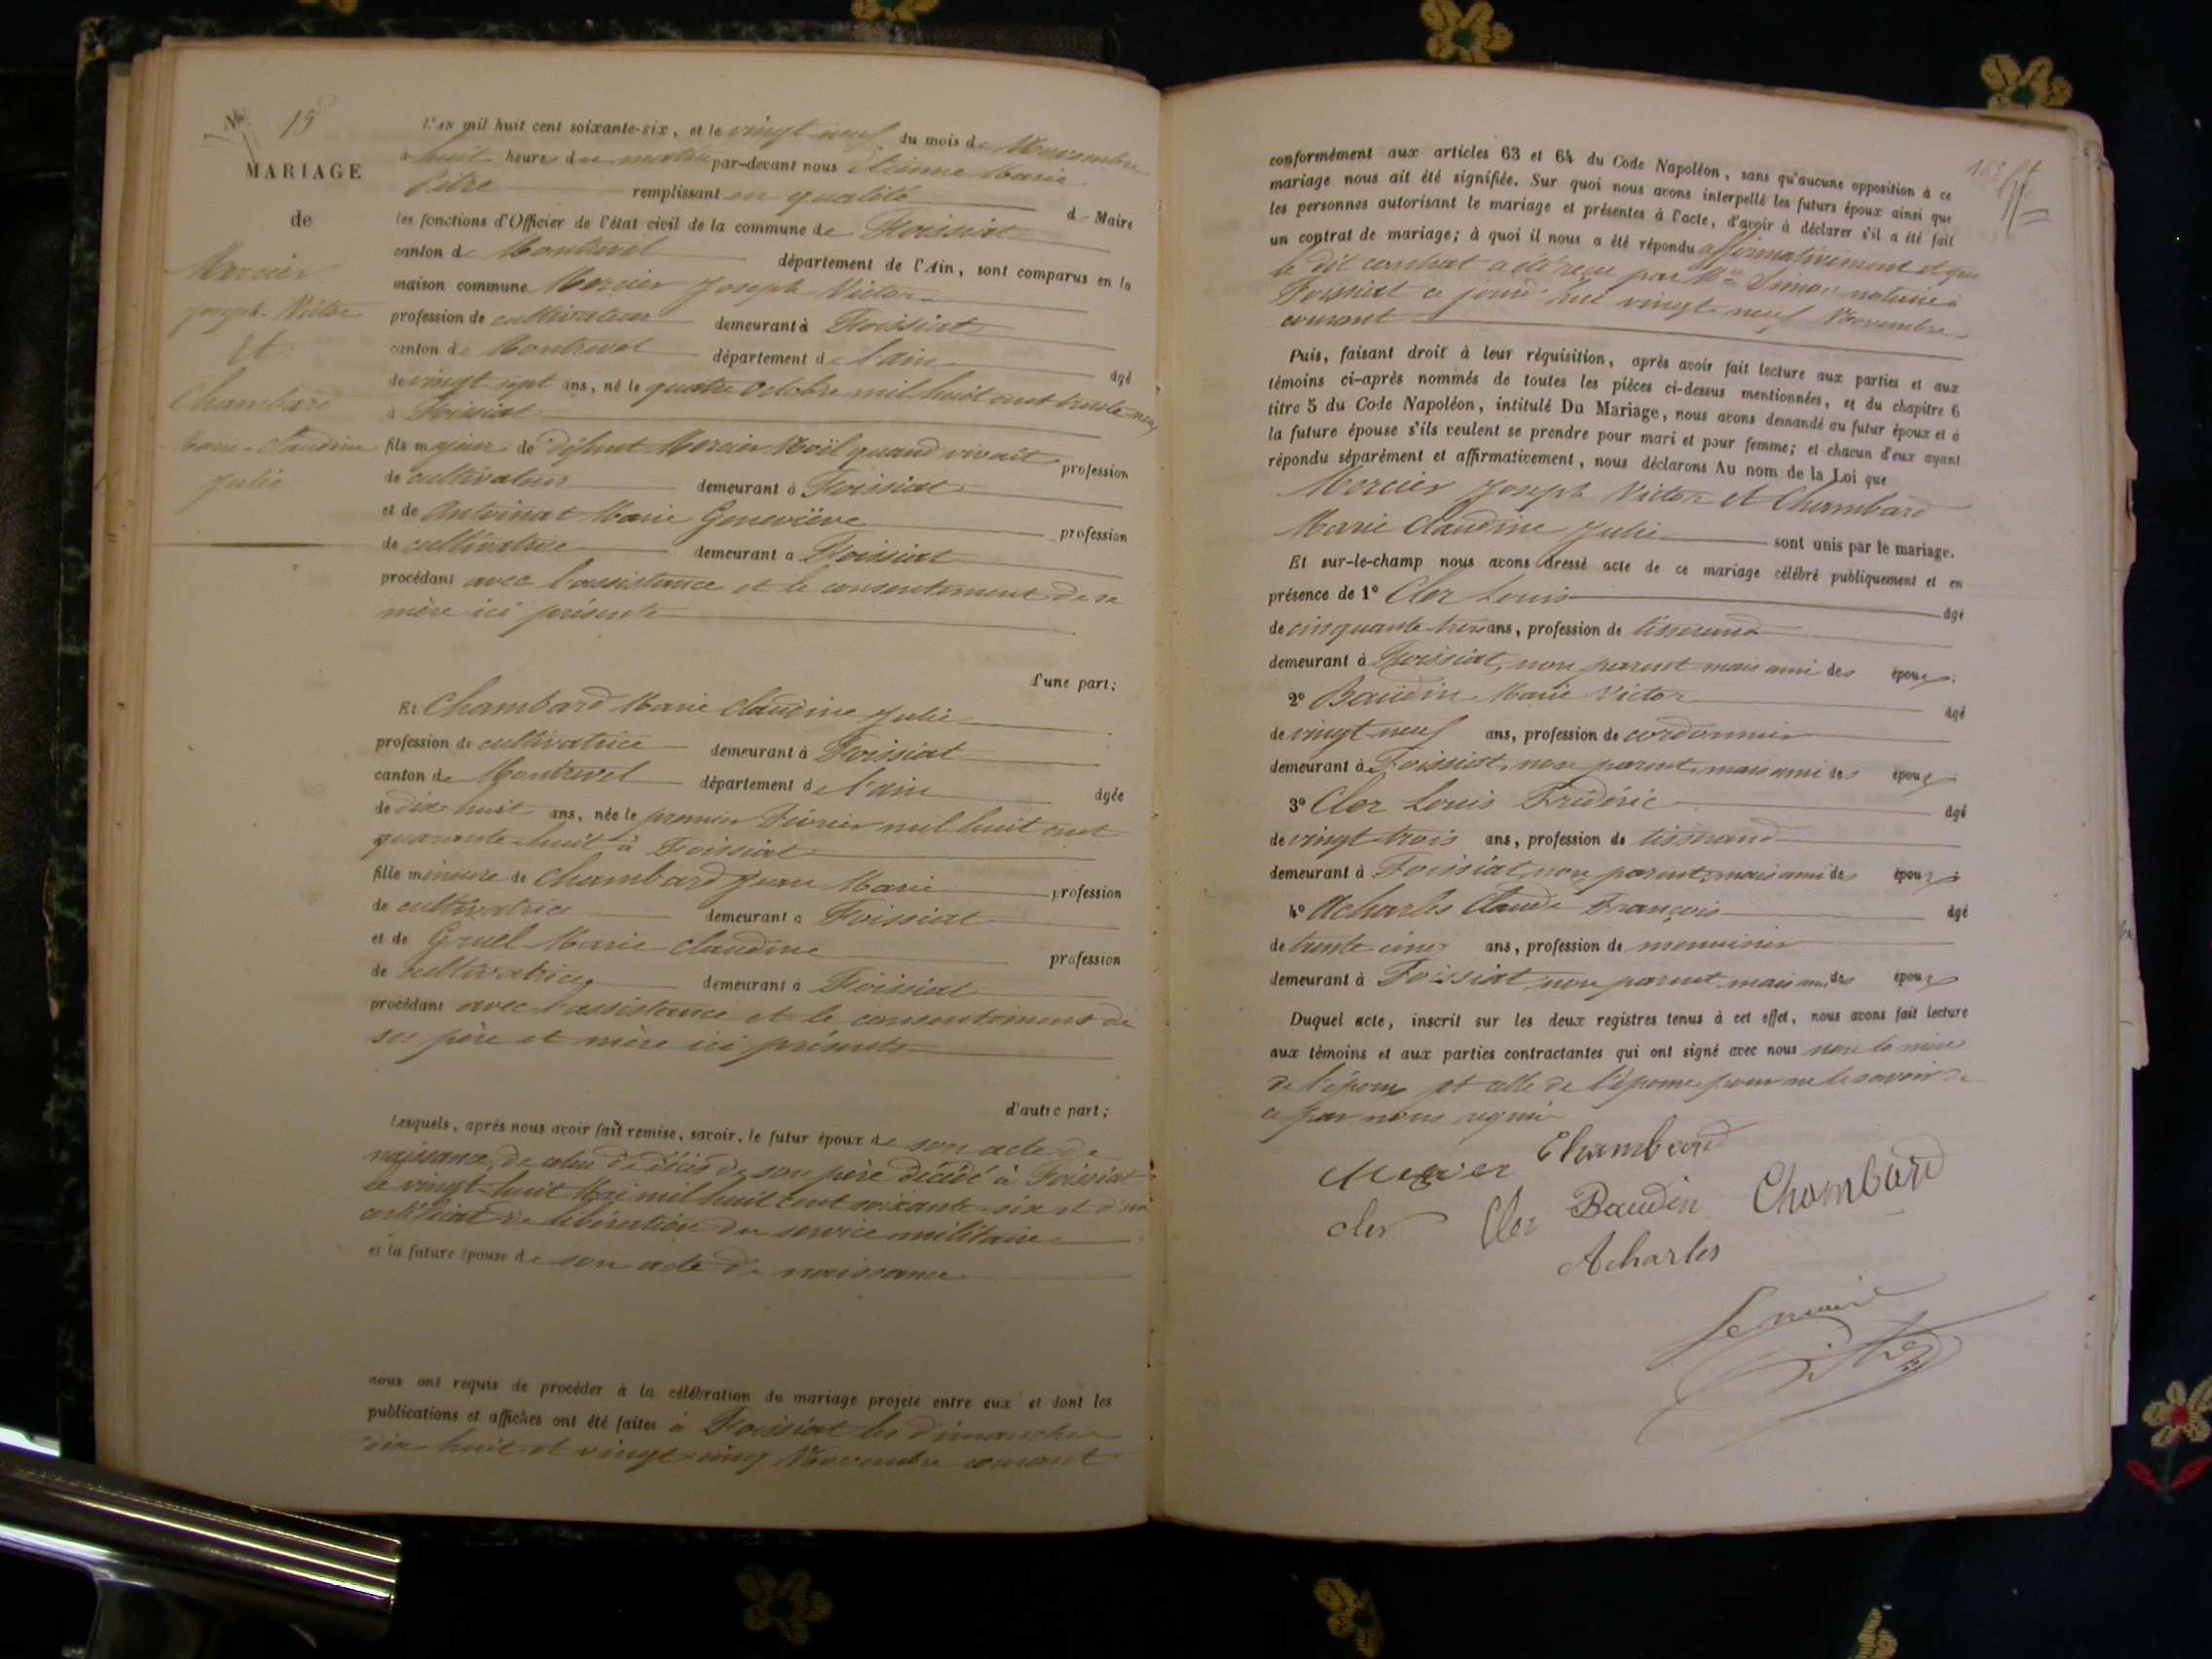 15
MARIAGE
de
Mercier
Joseph Victor
Et
Chambard
Marie-Claudine
Julie
L'AN mil huit cent soixante-six, et le vingt neuf du mois de Novembre
à huit heures du matin par-devant nous Etienne Marie
Pitre remplissant en qualité d Maire
les fonctions d'Officier de l'état civil de la commune de Foissiat
canton de Montrevel département de l'Ain, sont comparus en la
maison commune Mercier Joseph Victor
profession de cultivateur demeurant à Foissiat
canton de Montrevel département de l'ain âgé
de vingt sept ans, né le quatre Octobre mil huit cent trente neuf
à Foissiat
fils majeur de défunt Mercier Noël quand vivait profession
de cultivateur demeurant à Foissiat
et de Antoinat Marie Geneviève profession
de cultivatrice demeurant à Foissiat
procédant avec l'assistance et le consentement de sa
mère ici présente
d'une part;
Et Chambard Marie Claudine Julie
profession de cultivatrice demeurant à Foissiat
canton de Montrevel département de l'ain âgée
de dix huit ans, née le premier Février mil huit cent
quarante-huit à Foissiat
fille mineure de Chambard Jean Marie profession
de cultivatrice demeurant à Foissiat
et de Gruel Marie Claudine profession
de cultivatrice demeurant à Foissiat
procédant avec l'assistance et le consentement de
ses père et mère ici présents
d'autre part;
Lesquels, après nous avoir fait remise, savoir, le futur époux de son acte de
naissance, de celui de décès de son père décédé à Foissiat
le vingt-huit Mai mil huit cent soixante-six et d'un
certificat de libération du service militaire
et la future épouse de son acte de naissance
nous ont requis de procéder à la célébration du mariage projeté entre eux et dont les
publications et affiches ont été faites à Foissiat les dimanches
dix huit et vingt-cinq Novembre courant
conformément aux articles 63 et 64 du Code Napoléon, sans qu'aucune opposition à ce
mariage nous ait été signifiée. Sur quoi nous avons interpellé les futurs époux ainsi que
les personnes autorisant le mariage et présentes à l'acte, d'avoir à déclarer s'il a été fait
un contrat de mariage; à quoi il nous a été répondu affirmativement et que
le dit contrat a été reçu par Me Simon notaire à
Foissiat ce jourd'hui vingt neuf Novembre
courant
Puis, faisant droit à leur réquisition, après avoir fait lecture aux parties et aux
témoins ci-après nommés de toutes les pièces ci-dessus mentionnées, et du chapitre 6
titre 5 du Code Napoléon, intitulé Du Mariage, nous avons demandé au futur époux et à
la future épouse s'ils veulent se prendre pour mari et pour femme; et chacun d'eux ayant
répondu séparément et affirmativement, nous déclarons Au nom de la Loi que
Mercier Joseph Victor et Chambard
Marie Claudine Julie sont unis par le mariage.
Et sur-le-champ nous avons dressé acte de ce mariage célébré publiquement et en
présence de 1° Cler Louis âgé
de cinquante-trois ans, profession de tisserand
demeurant à Foissiat, non parent mais ami des époux.
2° Baudin Marie Victor âgé
de vingt neuf ans, profession de cordonnier
demeurant à Foissiat, non parent, mais ami des époux
3° Cler Louis Frédéric âgé
de vingt trois ans, profession de tisserand
demeurant à Foissiat, non parent, mais ami des époux
4° Acharles Claude François âgé
de trente cinq ans, profession de menuisier
demeurant à Foissiat, non parent mais ami des époux
Duquel acte, inscrit sur les deux registres tenus à cet effet, nous avons fait lecture
aux témoins et aux parties contractantes qui ont signé avec nous non la mère
de l'époux et celle de l'épouse pour ne le savoir de
ce par nous requis
Mercier Chambard
cler Cler Baudin Chambard
Acharles
Le maire
Pitre